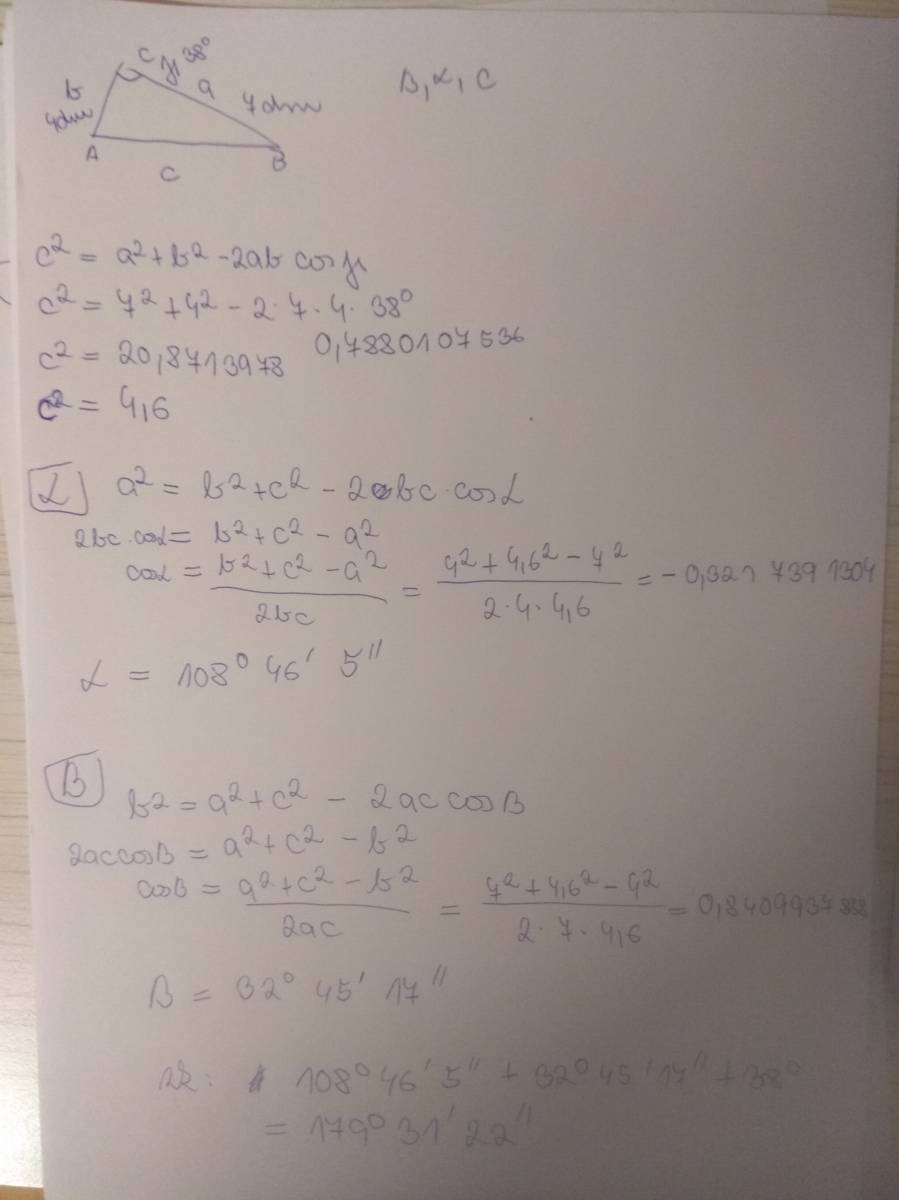 C γ 38°
b a 7dm β, α, c
4dm
A B
c
c² = a² + b² - 2ab cos γ
c² = 7² + 4² - 2·7·4·38°
c² = 20,8713978 0,7880107536
c = 4,6
α a² = b² + c² - 2bc·cosα
2bc·cosα = b² + c² - a²
cosα = b² + c² - a² / 2bc = 4² + 4,6² - 7² / 2·4·4,6 = -0,3217391304
α = 108° 46' 5"
β b² = a² + c² - 2ac cosβ
2ac cosβ = a² + c² - b²
cosβ = a² + c² - b² / 2ac = 7² + 4,6² - 4² / 2·7·4,6 = 0,8409937888
β = 32° 45' 17"
zk: 108° 46' 5" + 32° 45' 17" + 38°
= 179° 31' 22"